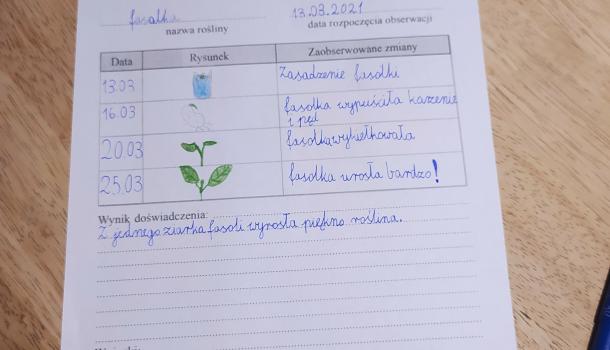 fasolka 13.03.2021
nazwa rośliny data rozpoczęcia obserwacji
Data Rysunek Zaobserwowane zmiany
13.03 Zasadzenie fasolki
16.03 fasolka wypuściła korzenie
i pęd
20.03 fasolka wykiełkowała
25.03 fasolka urosła bardzo!
Wynik doświadczenia:
Z jednego ziarka fasoli wyrosła piękna roślina.